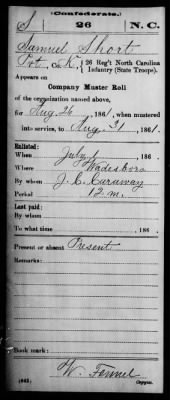 (Confederate.)
S 26 N. C.
Samuel Short
Pvt, Co. K, 26 Reg't North Carolina
Infantry (State Troops).
Appears on
Company Muster Roll
of the organization named above,
for Aug. 26, 1861, when mustered
into service, to Aug. 31, 1861.
Enlisted:
When July 1, 186 .
Where Wadesboro
By whom J. C. Caraway
Period 12 m.
Last paid:
By whom
To what time , 186 .
Present or absent Present
Remarks:
Book mark:
W. Fennel
(642) Copyist.